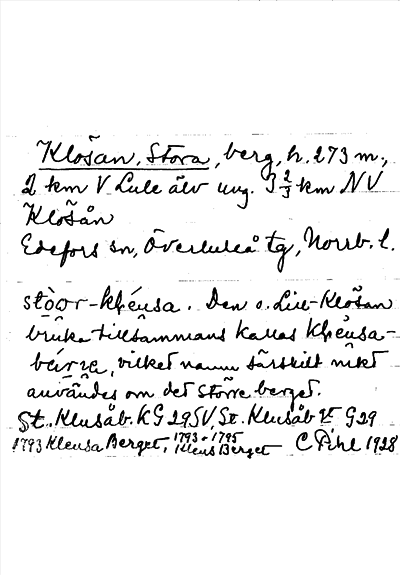 Klösan, Stora, berg, h. 273 m.,
2 km V Lule älv ung. 3 2/3 km NV
Klösån
Edefors sn, Överluleå tg, Norrb. l.
Den o. Lill-Klösan
bruka tillsammans kallas
vilket namn särskilt rikt
användes om det större berget.
St. Klusåb. KG 29SV, St. Klusåb G29
1793 Kleusa Berget, 1793 + 1795 Kleus Berget C Pihl 1928